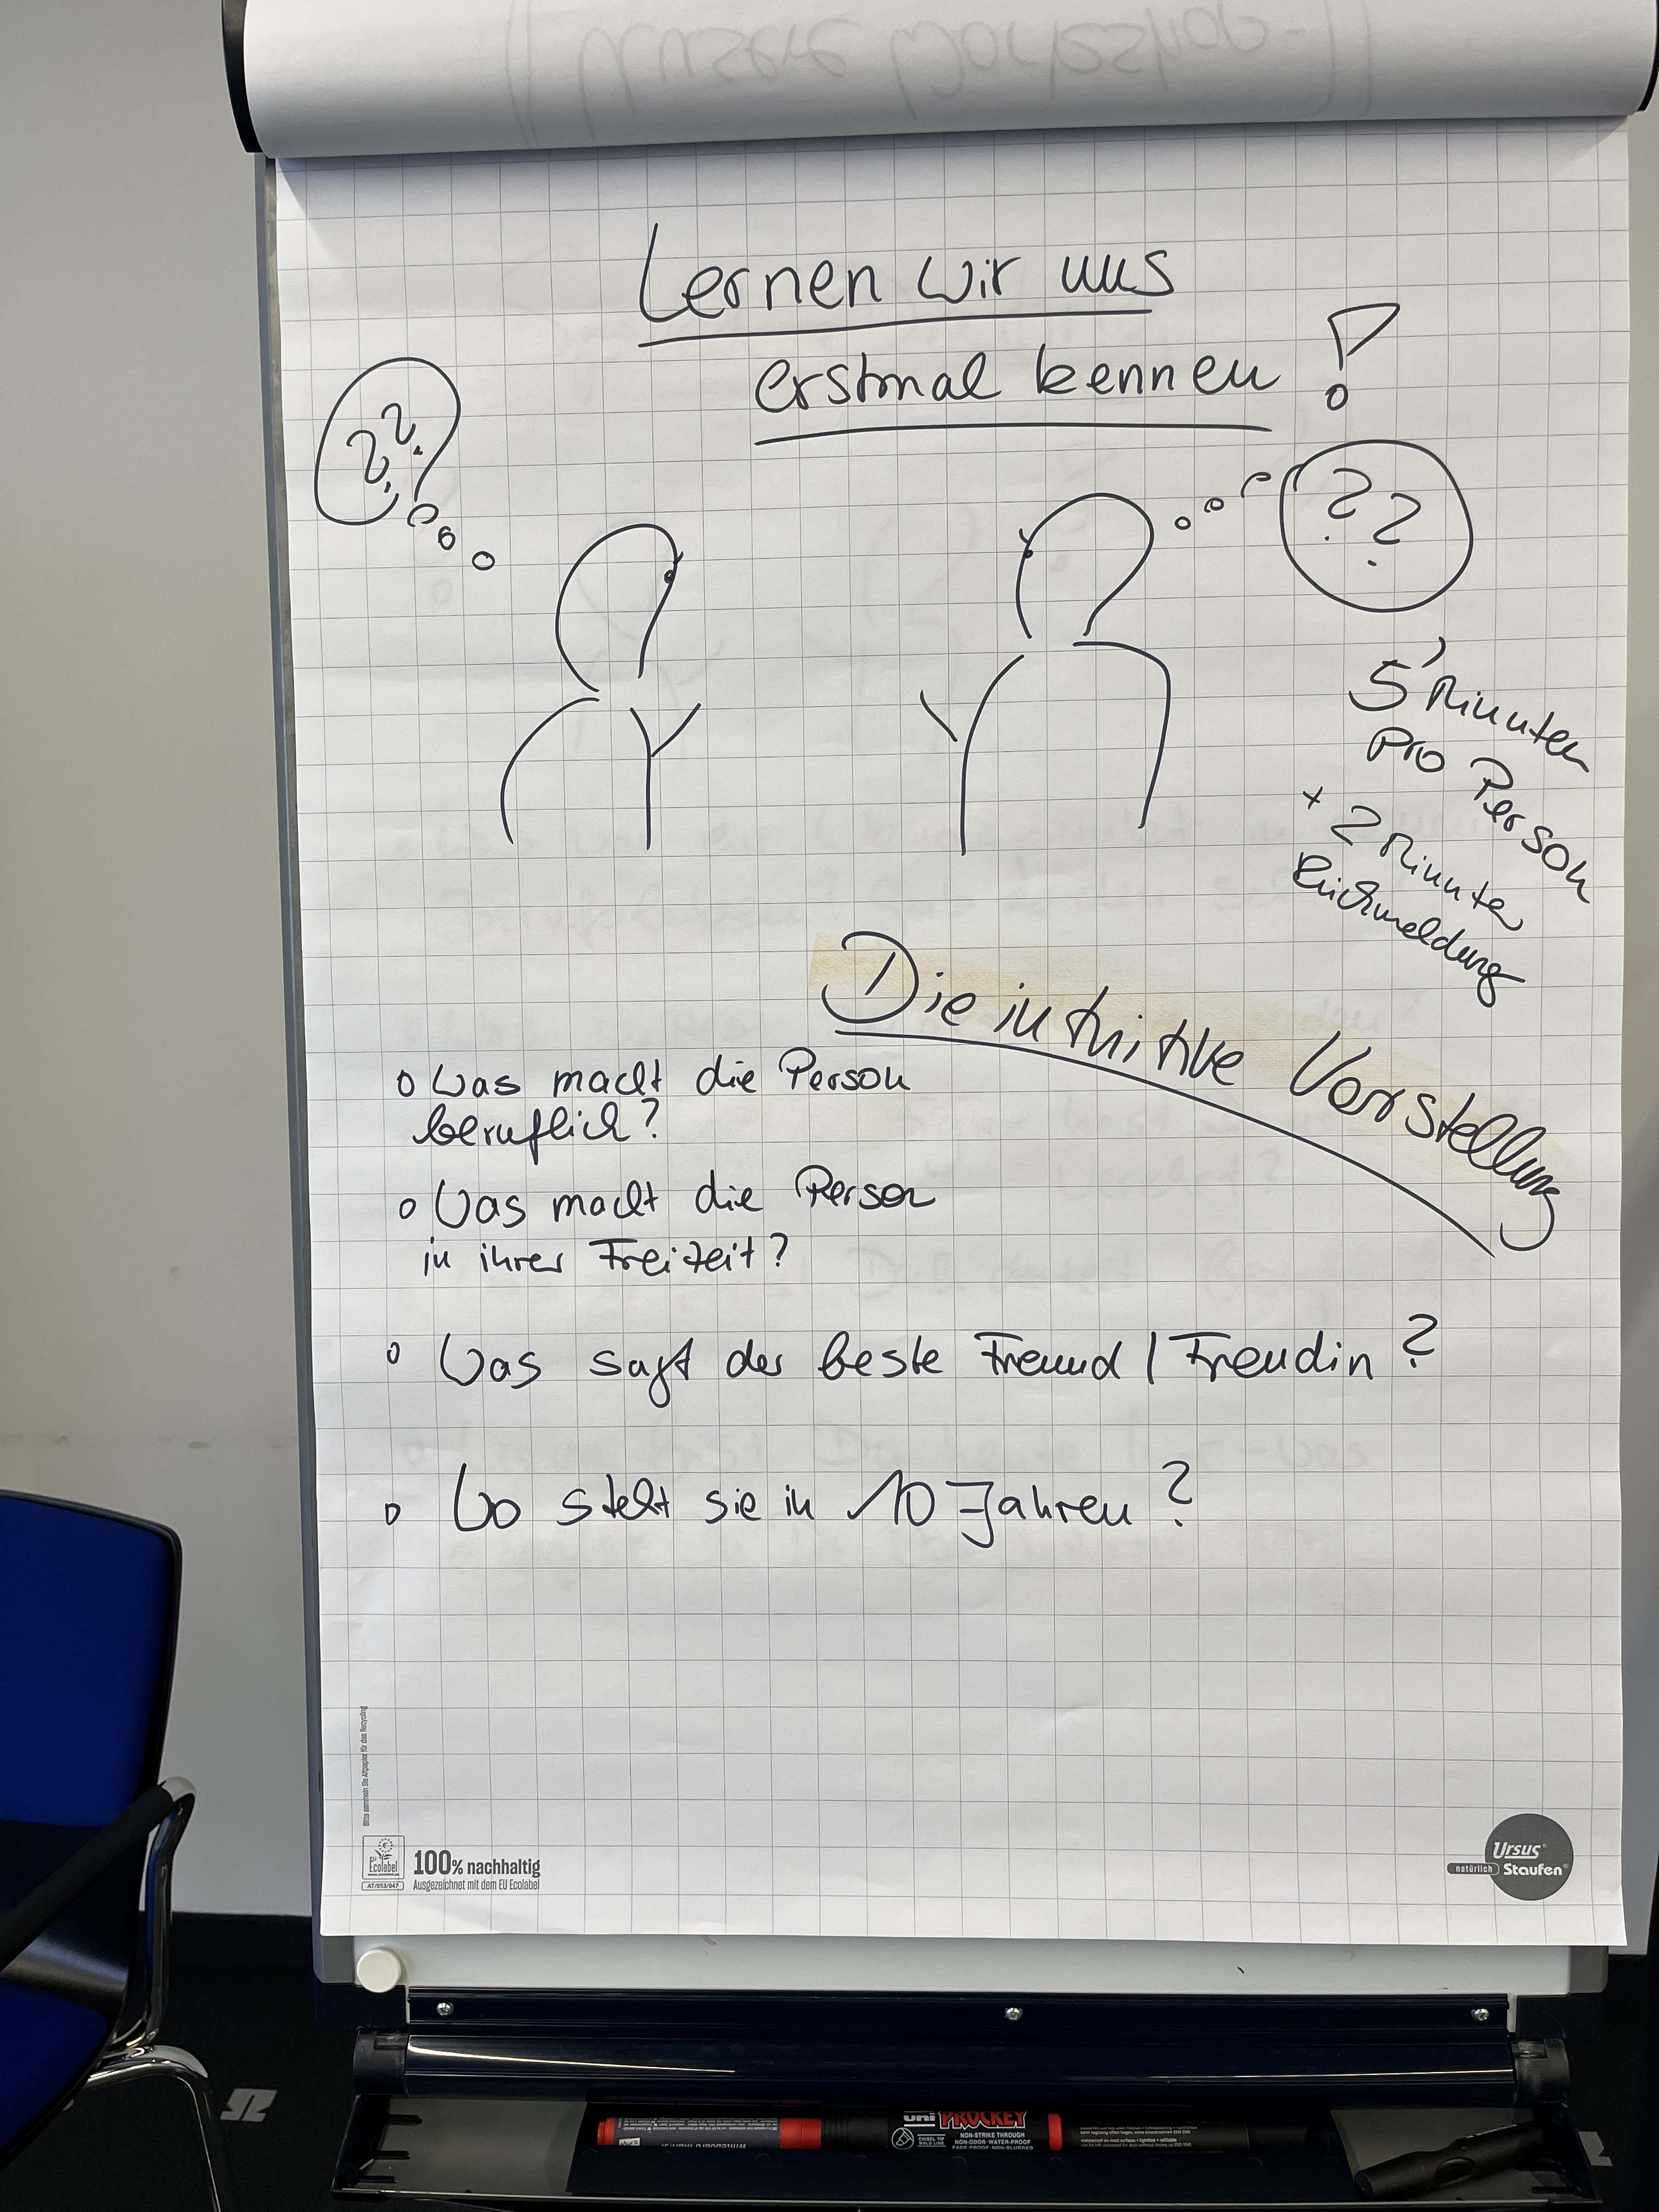 Unsere Workshop-
Lernen wir uns
erstmal kennen !
? ?
? ?
5 Minuten
pro Person
+ 2 Minuten
Rückmeldung
Die intuitive Vorstellung
o Was macht die Person
beruflich?
o Was macht die Person
in ihrer Freizeit?
o Was sagt der beste Freund / Freudin ?
o Wo steht sie in 10 Jahren ?
Bitte sammeln Sie Altpapier für das Recycling
EU
Ecolabel
AT/053/047
100% nachhaltig
Ausgezeichnet mit dem EU Ecolabel
Ursus®
natürlich Staufen®
uni PROCKEY
CHISEL TIP
BOLD LINE
NON-STRIKE THROUGH
NON-ODOR·WATER-PROOF
FADE-PROOF·NON-BLURRED